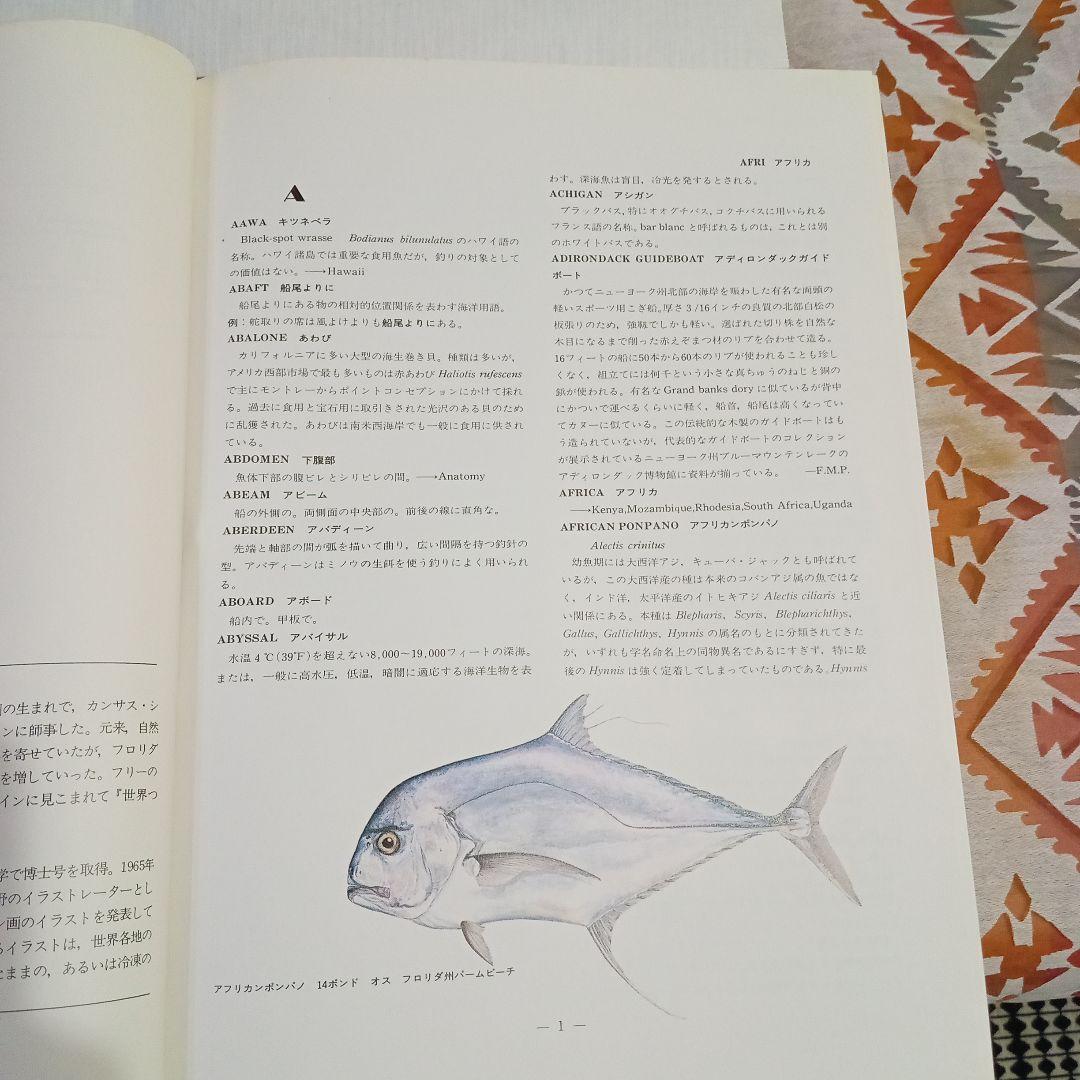 の生まれで，カンサス・シ
ンに師事した。元来，自然
を寄せていたが，フロリダ
を増していった。フリーの
インに見こまれて『世界つ
学で博士号を取得。1965年
野のイラストレーターとし
画のイラストを発表して
るイラストは，世界各地の
たままの，あるいは冷凍の
A
AAWA キツネベラ
Black-spot wrasse Bodianus bilunulatus のハワイ語の
名称。ハワイ諸島では重要な食用魚だが，釣りの対象として
の価値はない。→Hawaii
ABAFT 船尾よりに
船尾よりにある物の相対的位置関係を表わす海洋用語。
例：舵取りの席は風よけよりも船尾よりにある。
ABALONE あわび
カリフォルニアに多い大型の海生巻き貝。種類は多いが，
アメリカ西部市場で最も多いものは赤あわび Haliotis rufescens
で主にモントレーからポイントコンセプションにかけて採れ
る。過去に食用と宝石用に取引きされた光沢のある貝のため
に乱獲された。あわびは南米西海岸でも一般に食用に供され
ている。
ABDOMEN 下腹部
魚体下部の腹ビレとシリビレの間。→Anatomy
ABEAM アビーム
船の外側の。両側面の中央部の。前後の線に直角な。
ABERDEEN アバディーン
先端と軸部の間が弧を描いて曲り，広い間隔を持つ釣針の
型。アバディーンはミノウの生餌を使う釣りによく用いられ
る。
ABOARD アボード
船内で。甲板で。
ABYSSAL アバイサル
水温 4 ℃(39°F)を超えない8,000〜19,000フィートの深海。
または，一般に高水圧，低温，暗闇に適応する海洋生物を表
AFRI アフリカ
わす。深海魚は盲目，冷光を発するとされる。
ACHIGAN アシガン
ブラックバス，特にオオグチバス，コクチバスに用いられる
フランス語の名称。bar blanc と呼ばれるものは，これとは別
のホワイトバスである。
ADIRONDACK GUIDEBOAT アディロンダックガイド
ボート
かつてニューヨーク州北部の海岸を賑わした有名な両頭の
軽いスポーツ用こぎ船。厚さ 3 /16インチの良質の北部白松の
板張りのため，強靱でしかも軽い。選ばれた切り株を自然な
木目になるまで削った赤えぞまつ材のリブを合わせて造る。
16フィートの船に50本から60本のリブが使われることも珍し
くなく，組立てには何千という小さな真ちゅうのねじと銅の
鋲が使われる。有名な Grand banks dory に似ているが背中
にかついで運べるくらいに軽く，船首，船尾は高くなってい
てカヌーに似ている。この伝統的な木製のガイドボートはも
う造られていないが，代表的なガイドボートのコレクション
が展示されているニューヨーク州ブルーマウンテンレークの
アディロンダック博物館に資料が揃っている。 —F.M.P.
AFRICA アフリカ
→Kenya,Mozambique,Rhodesia,South Africa,Uganda
AFRICAN PONPANO アフリカンポンパノ
Alectis crinitus
幼魚期には大西洋アジ，キューバ・ジャックとも呼ばれて
いるが，この大西洋産の種は本来のコバンアジ属の魚ではな
く，インド洋，太平洋産のイトヒキアジ Alectis ciliaris と近
い関係にある。本種は Blepharis，Scyris，Blepharichthys，
Gallus，Gallichthys，Hynnis の属名のもとに分類されてきた
が，いずれも学名命名上の同物異名であるにすぎず，特に最
後の Hynnis は強く定着してしまっていたものである。Hynnis
アフリカンポンパノ 14ポンド オス フロリダ州パームビーチ
— 1 —